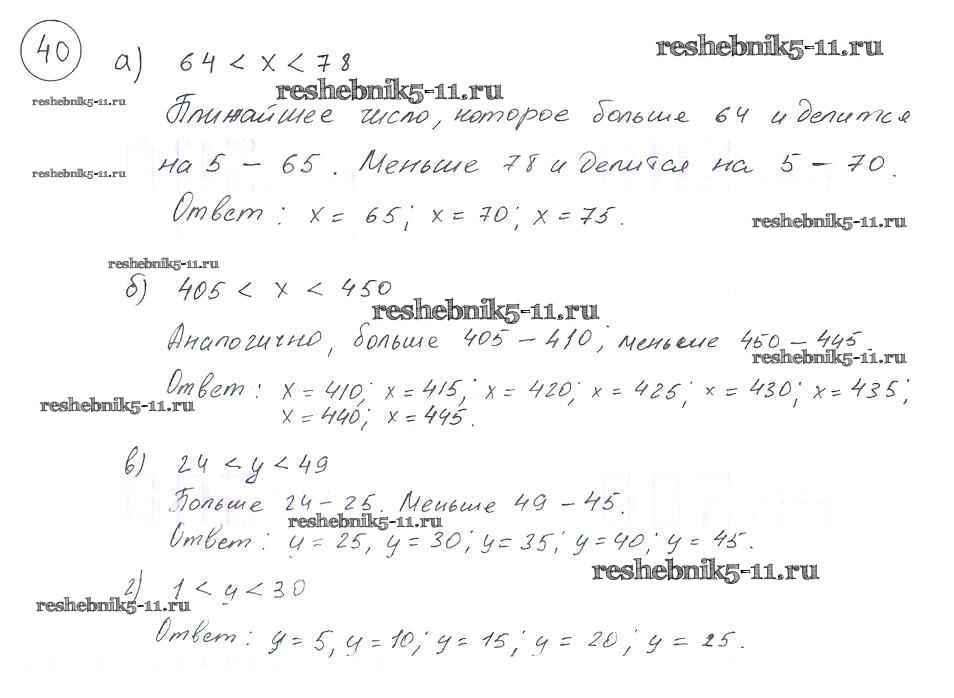 40
а) 64 < x < 78
reshebnik5-11.ru
reshebnik5-11.ru
reshebnik5-11.ru
Ближайшее число, которое больше 64 и делится
на 5 – 65. Меньше 78 и делится на 5 – 70.
reshebnik5-11.ru
Ответ: x = 65; x = 70; x = 75.
reshebnik5-11.ru
reshebnik5-11.ru
б) 405 < x < 450
reshebnik5-11.ru
Аналогично, больше 405 – 410; меньше 450 – 445.
reshebnik5-11.ru
Ответ: x = 410; x = 415; x = 420; x = 425; x = 430; x = 435;
reshebnik5-11.ru
x = 440; x = 445.
в) 24 < y < 49
Больше 24 – 25. Меньше 49 – 45.
reshebnik5-11.ru
Ответ: y = 25, y = 30; y = 35; y = 40; y = 45.
reshebnik5-11.ru
г) 1 < y < 30
reshebnik5-11.ru
Ответ: y = 5, y = 10; y = 15; y = 20; y = 25.